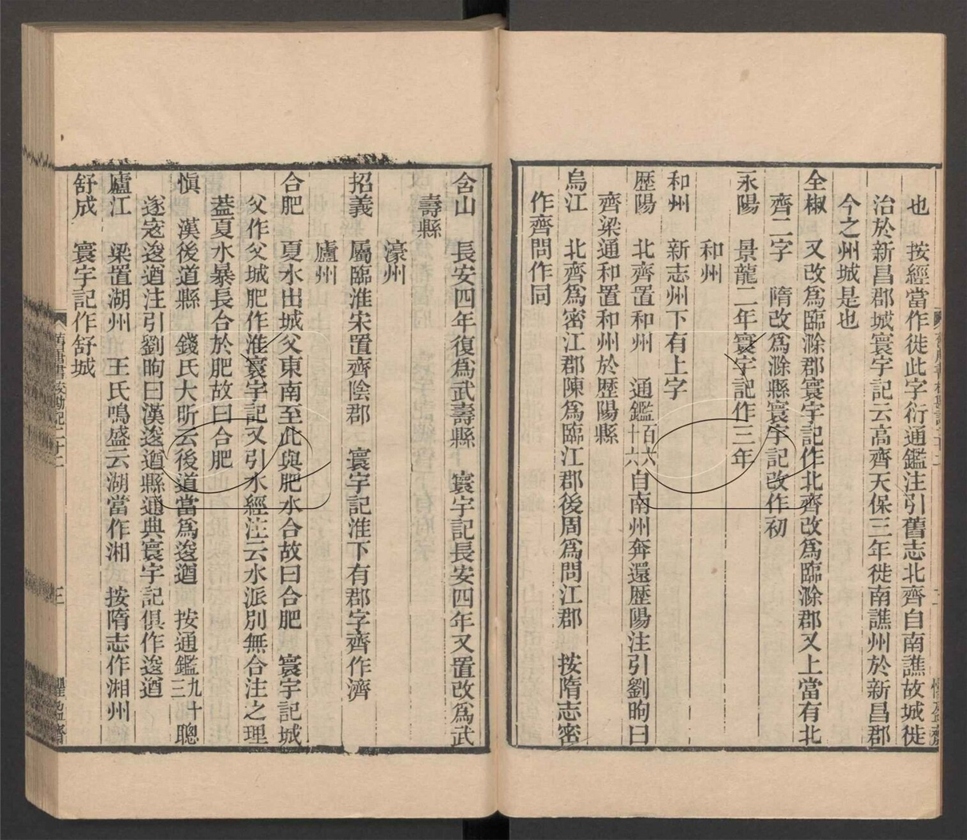 也　按經當作徙此字衍通鑑注引舊志北齊自南譙故城徙
治於新昌郡城寰宇記云高齊天保三年徙南譙州於新昌郡
今之州城是也
全椒　又改爲臨滁郡寰宇記作北齊改爲臨滁郡又上當有北
齊二字　隋改爲滁縣寰宇記改作初
永陽　景龍二年寰宇記作三年
和州
和州　新志州下有上字
歷陽　北齊置和州　通鑑百六十六自南州奔還歷陽注引劉昫曰
齊梁通和置和州於歷陽縣
烏江　北齊爲密江郡陳爲臨江郡後周爲問江郡　按隋志密
作齊問作同
含山　長安四年復爲武壽縣　寰宇記長安四年又置改爲武
壽縣
濠州
招義　屬臨淮宋置齊陰郡　寰宇記淮下有郡字齊作濟
廬州
合肥　夏水出城父東南至此與肥水合故曰合肥　寰宇記城
父作父城肥作淮寰宇記又引水經注云水派別無合注之理
葢夏水暴長合於肥故曰合肥
愼　漢後道縣　錢氏大昕云後道當爲逡遒　按通鑑九十三聰
遂寇逡遒注引劉昫曰漢逡遒縣通典寰宇記俱作逡遒
廬江　梁置湖州　王氏鳴盛云湖當作湘　按隋志作湘州
舒成　寰宇記作舒城
三
懼盈齋